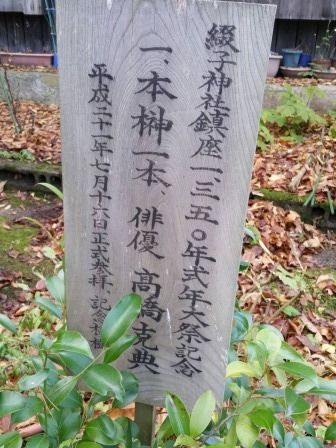 綴子神社鎮座一三五〇年式年大祭記念
一、本榊一本、俳優 高橋克典
平成二十一年七月十六日正式参拝、記念植樹